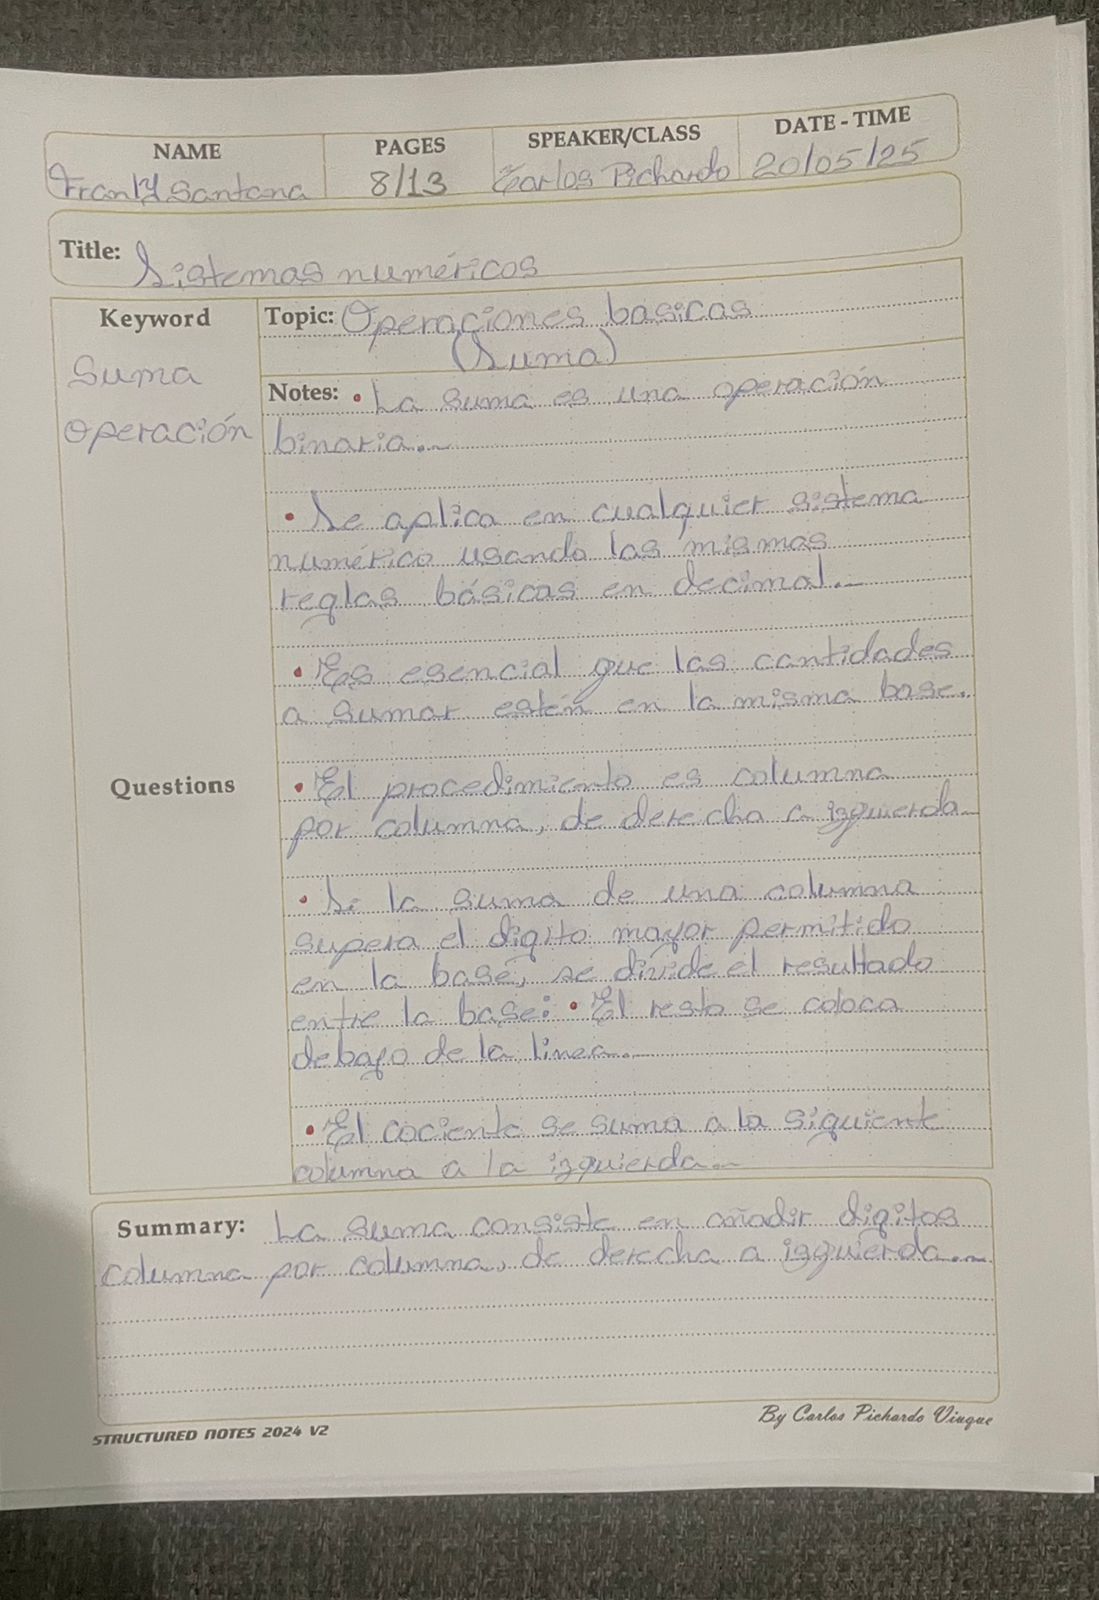 NAME PAGES SPEAKER/CLASS DATE - TIME
Frankly Santana 8/13 Carlos Pichardo 20/05/25
Title: Sistemas numéricos
Keyword
Suma
Operación
Topic: Operaciones basicas
(Suma)
Notes: • La suma es una operación
binaria..
• Se aplica en cualquier sistema
numérico usando las mismas
reglas básicas en decimal..
• Es esencial que las cantidades
a sumar estén en la misma base.
Questions
• El procedimiento es columna
por columna, de derecha a izquierda..
• Si la suma de una columna
supera el digito mayor permitido
en la base, se divide el resultado
entre la base: • El resto se coloca
debajo de la linea..
• El cociente se suma a la siguiente
columna a la izquierda..
Summary: La suma consiste en añadir digitos
columna por columna, de derecha a izquierda..
STRUCTURED NOTES 2024 V2
By Carlos Pichardo Viuque